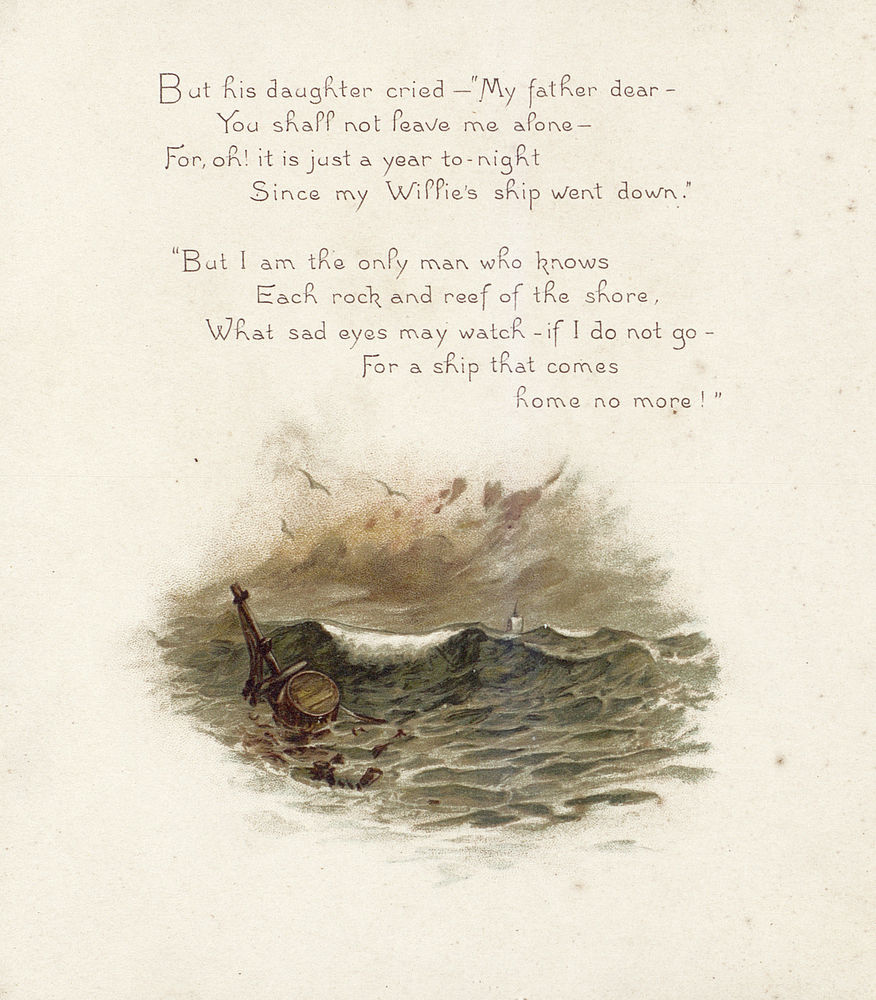 But his daughter cried — "My father dear –
You shall not leave me alone –
For, oh! it is just a year to-night
Since my Willie's ship went down."
"But I am the only man who knows
Each rock and reef of the shore,
What sad eyes may watch - if I do not go –
For a ship that comes
home no more! "